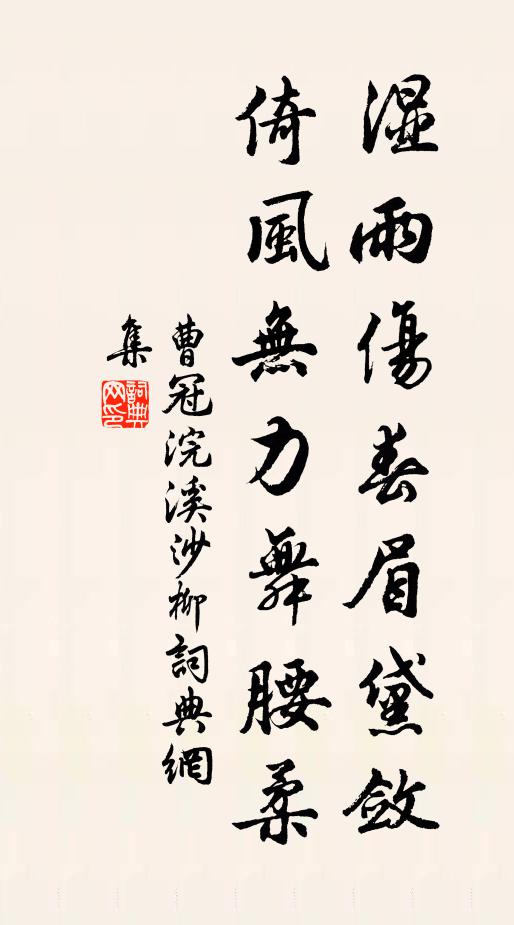 湿雨傷春眉黛斂
倚風無力舞腰柔
曹冠浣溪沙柳詞典網
集
詞典
网印